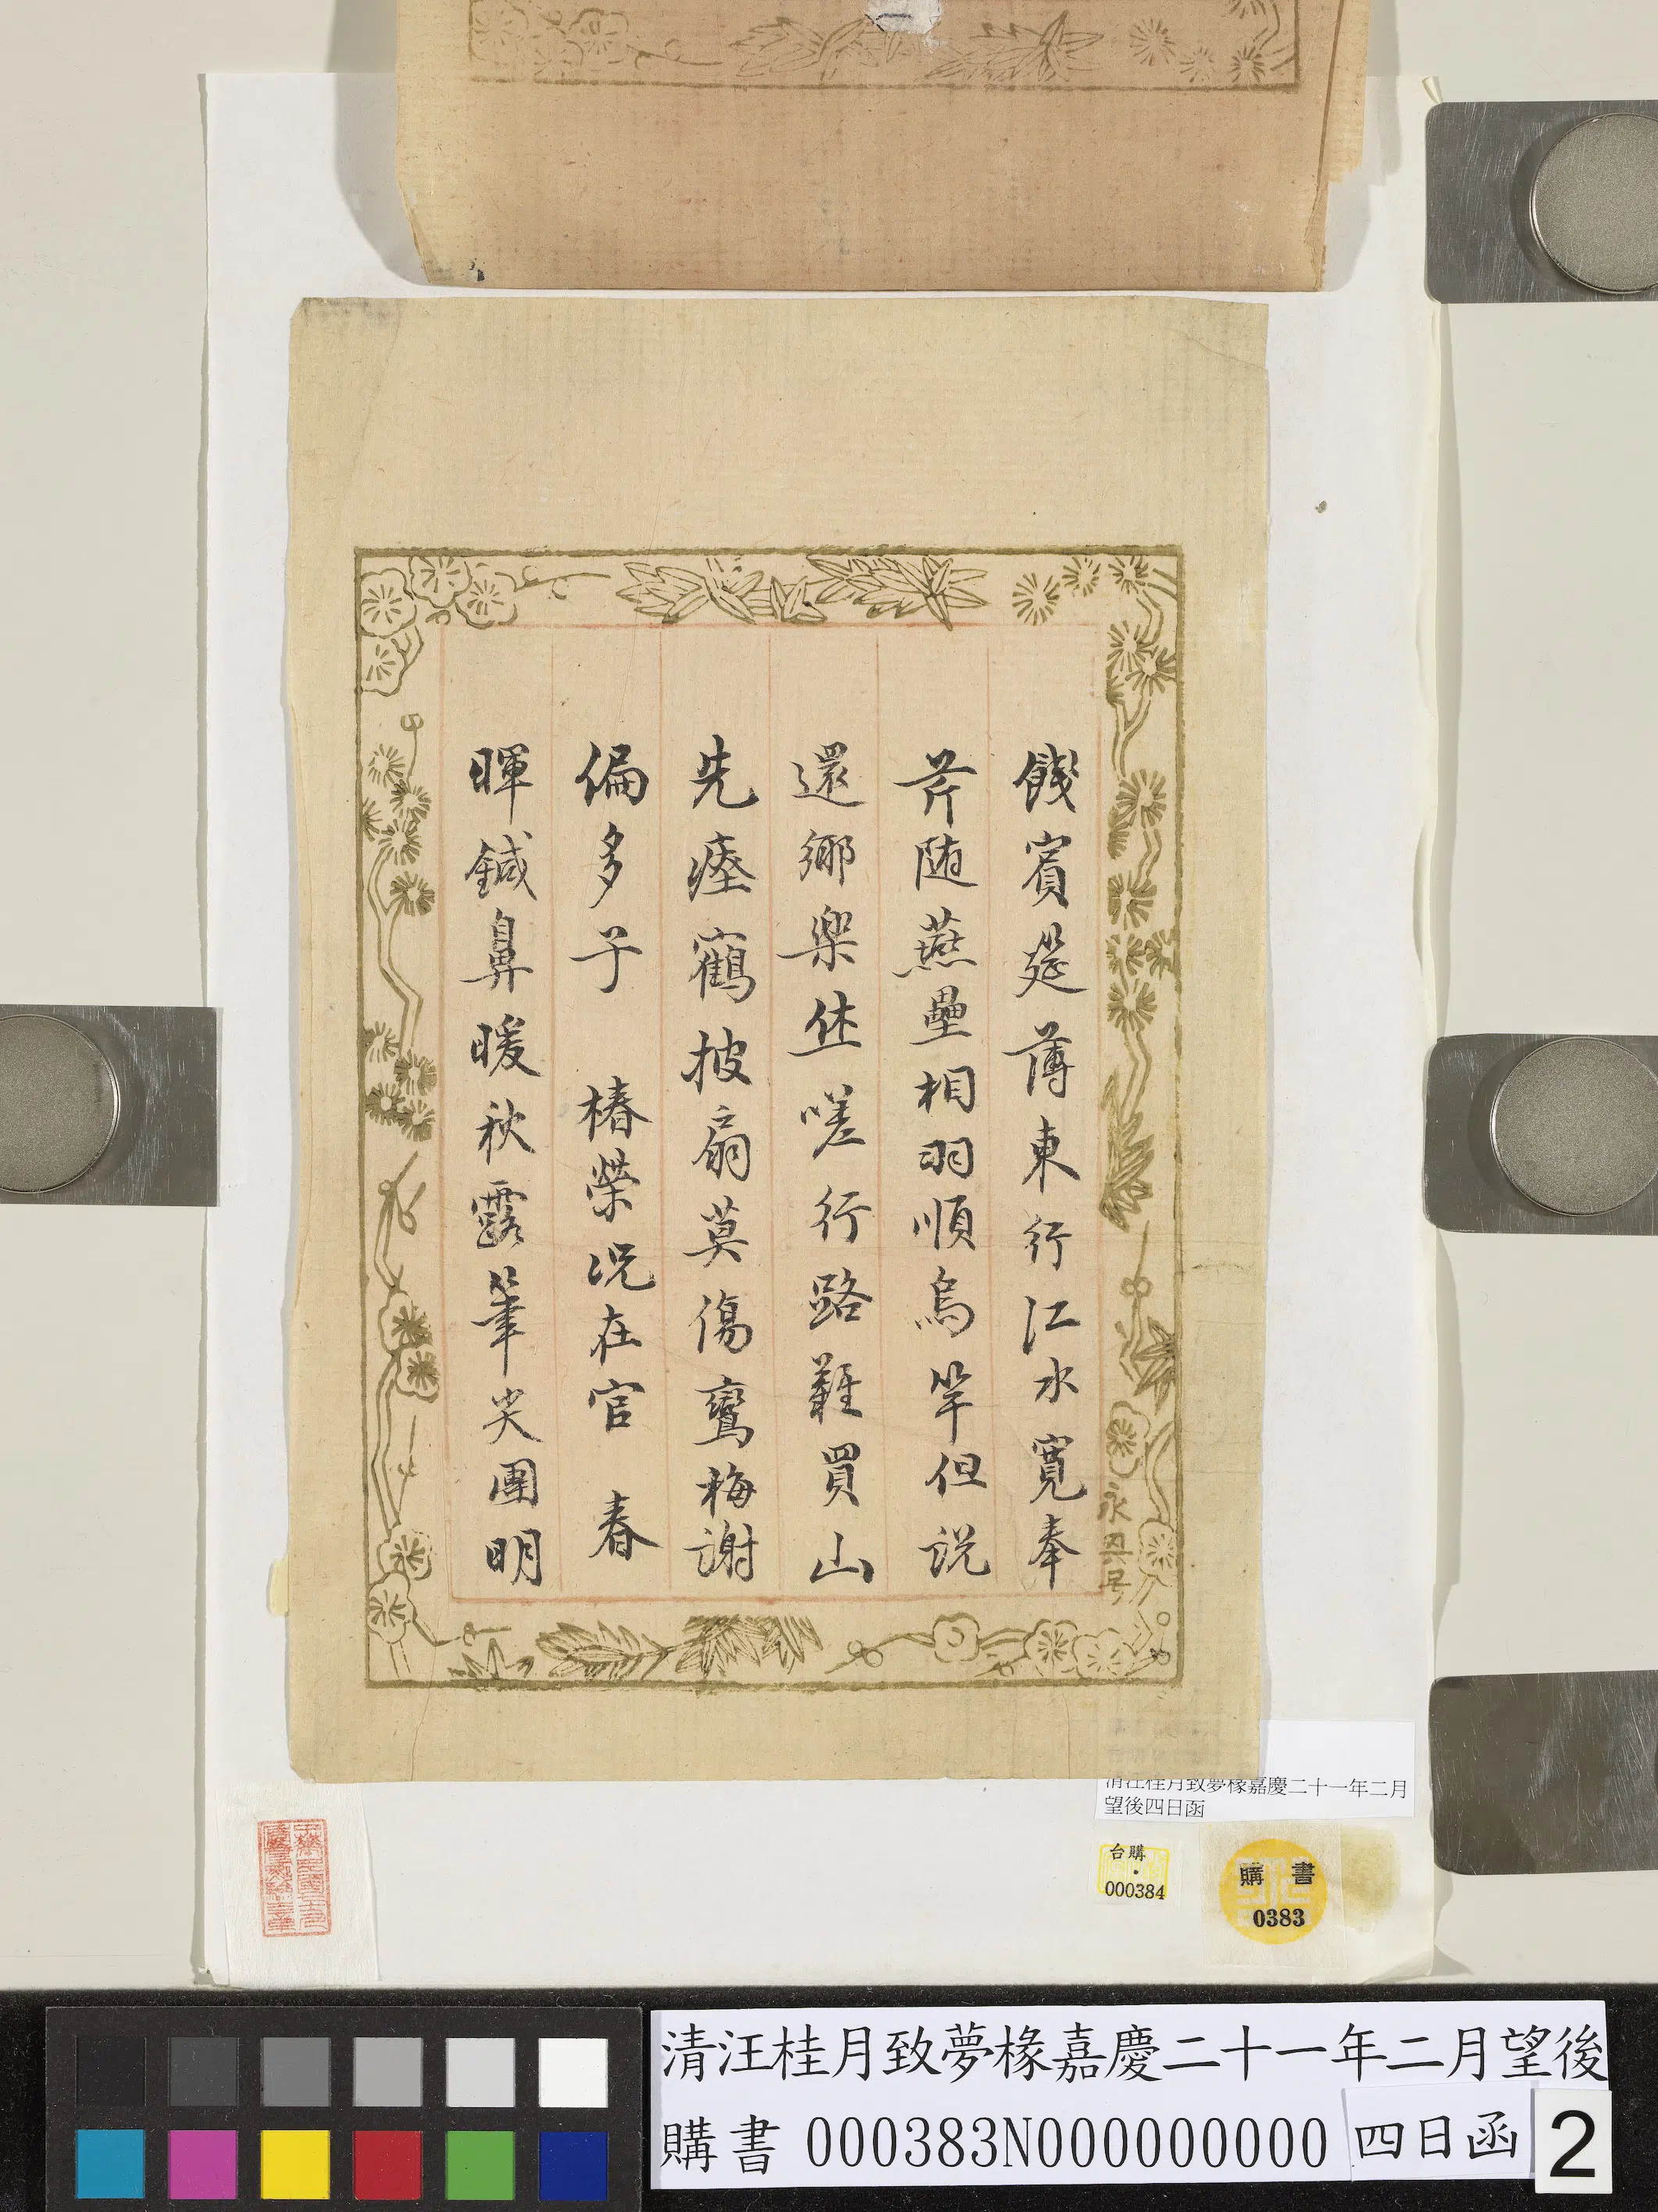 餞賓筵薄東行江水寬奉
芹随燕壘相羽順烏竿但説
還鄉樂𠀤嗟行路難買山
先瘞鶴披扇莫傷鸞梅謝
偏多子 椿榮况在官 春
暉鍼鼻暖秋露筆尖團明
永昱号
清汪桂月致夢椽嘉慶二十一年二月
望後四日函
台購
000384
購書
0383
清汪桂月致夢椽嘉慶二十一年二月望後
購書 000383N000000000 四日函 2